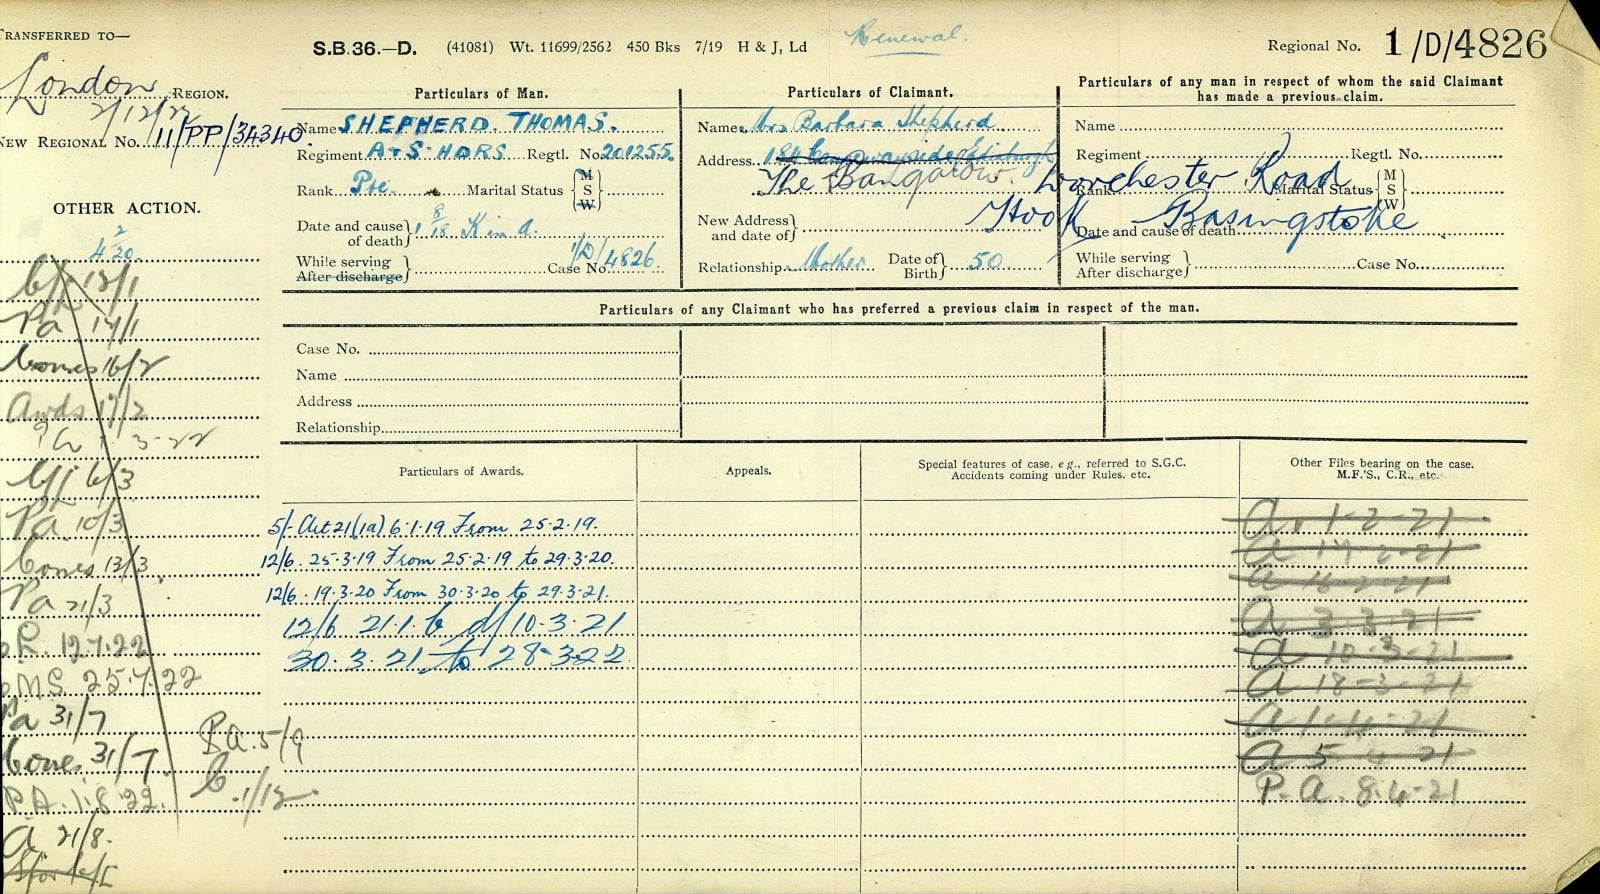 TRANSFERRED TO—
London REGION.
2/12/22
NEW REGIONAL No. 11/PP/34340.
OTHER ACTION.
4 2/20.
13/1
Pa 14/1
Cones 16/2
Awds 17/2
3-22
6/3
Pa 10/3
Cones 13/3.
Pa 21/3
12.7.22
M.S. 25.7.22
Pa 31/7
Cones. 31/7.
P.A. 1.8.22.
P.A. 5/9
C .1/12.
A 21/8.
S.B.36.—D. (41081) Wt. 11699/2562 450 Bks 7/19 H & J, Ld
Renewal.
Regional No. 1/D/4826
Particulars of Man.
Name SHEPHERD. THOMAS.
Regiment A & S. HDRS. Regtl. No. 201255.
Rank Pte. Marital Status { M S W }
Date and cause of death } 1 8/18 K in A.
While serving
After discharge } Case No. 1/D/4826.
Particulars of Claimant.
Name Mrs Barbara Shepherd
Address Causewayside Edinburgh
The Bangalow. Dorchester Road
New Address and date of } Hook Basingstoke
Relationship Mother Date of Birth } 50
Particulars of any man in respect of whom the said Claimant
has made a previous claim.
Name
Regiment Regtl. No.
Rank Marital Status { M S W }
Date and cause of death
While serving
After discharge } Case No.
Particulars of any Claimant who has preferred a previous claim in respect of the man.
Case No.
Name
Address
Relationship
Particulars of Awards.
5/- Art 21(1a) 6.1.19 From 25.2.19.
12/6. 25.3.19 From 25.2.19 to 29.3.20.
12/6. 19.3.20 From 30.3.20 to 29.3.21.
12/6 21.1.b d/ 10.3.21
30.3.21 to 28.3.22
Appeals.
Special features of case, e.g., referred to S.G.C.
Accidents coming under Rules, etc.
Other Files bearing on the case.
M.F.'S., C.R., etc.
A. 1-2-21
A 17-2-21
A 18-2-21
A 3-3-21
A 10-3-21
A 18-3-21
A 1-4-21
A 5-4-21
P.A. 8.4-21